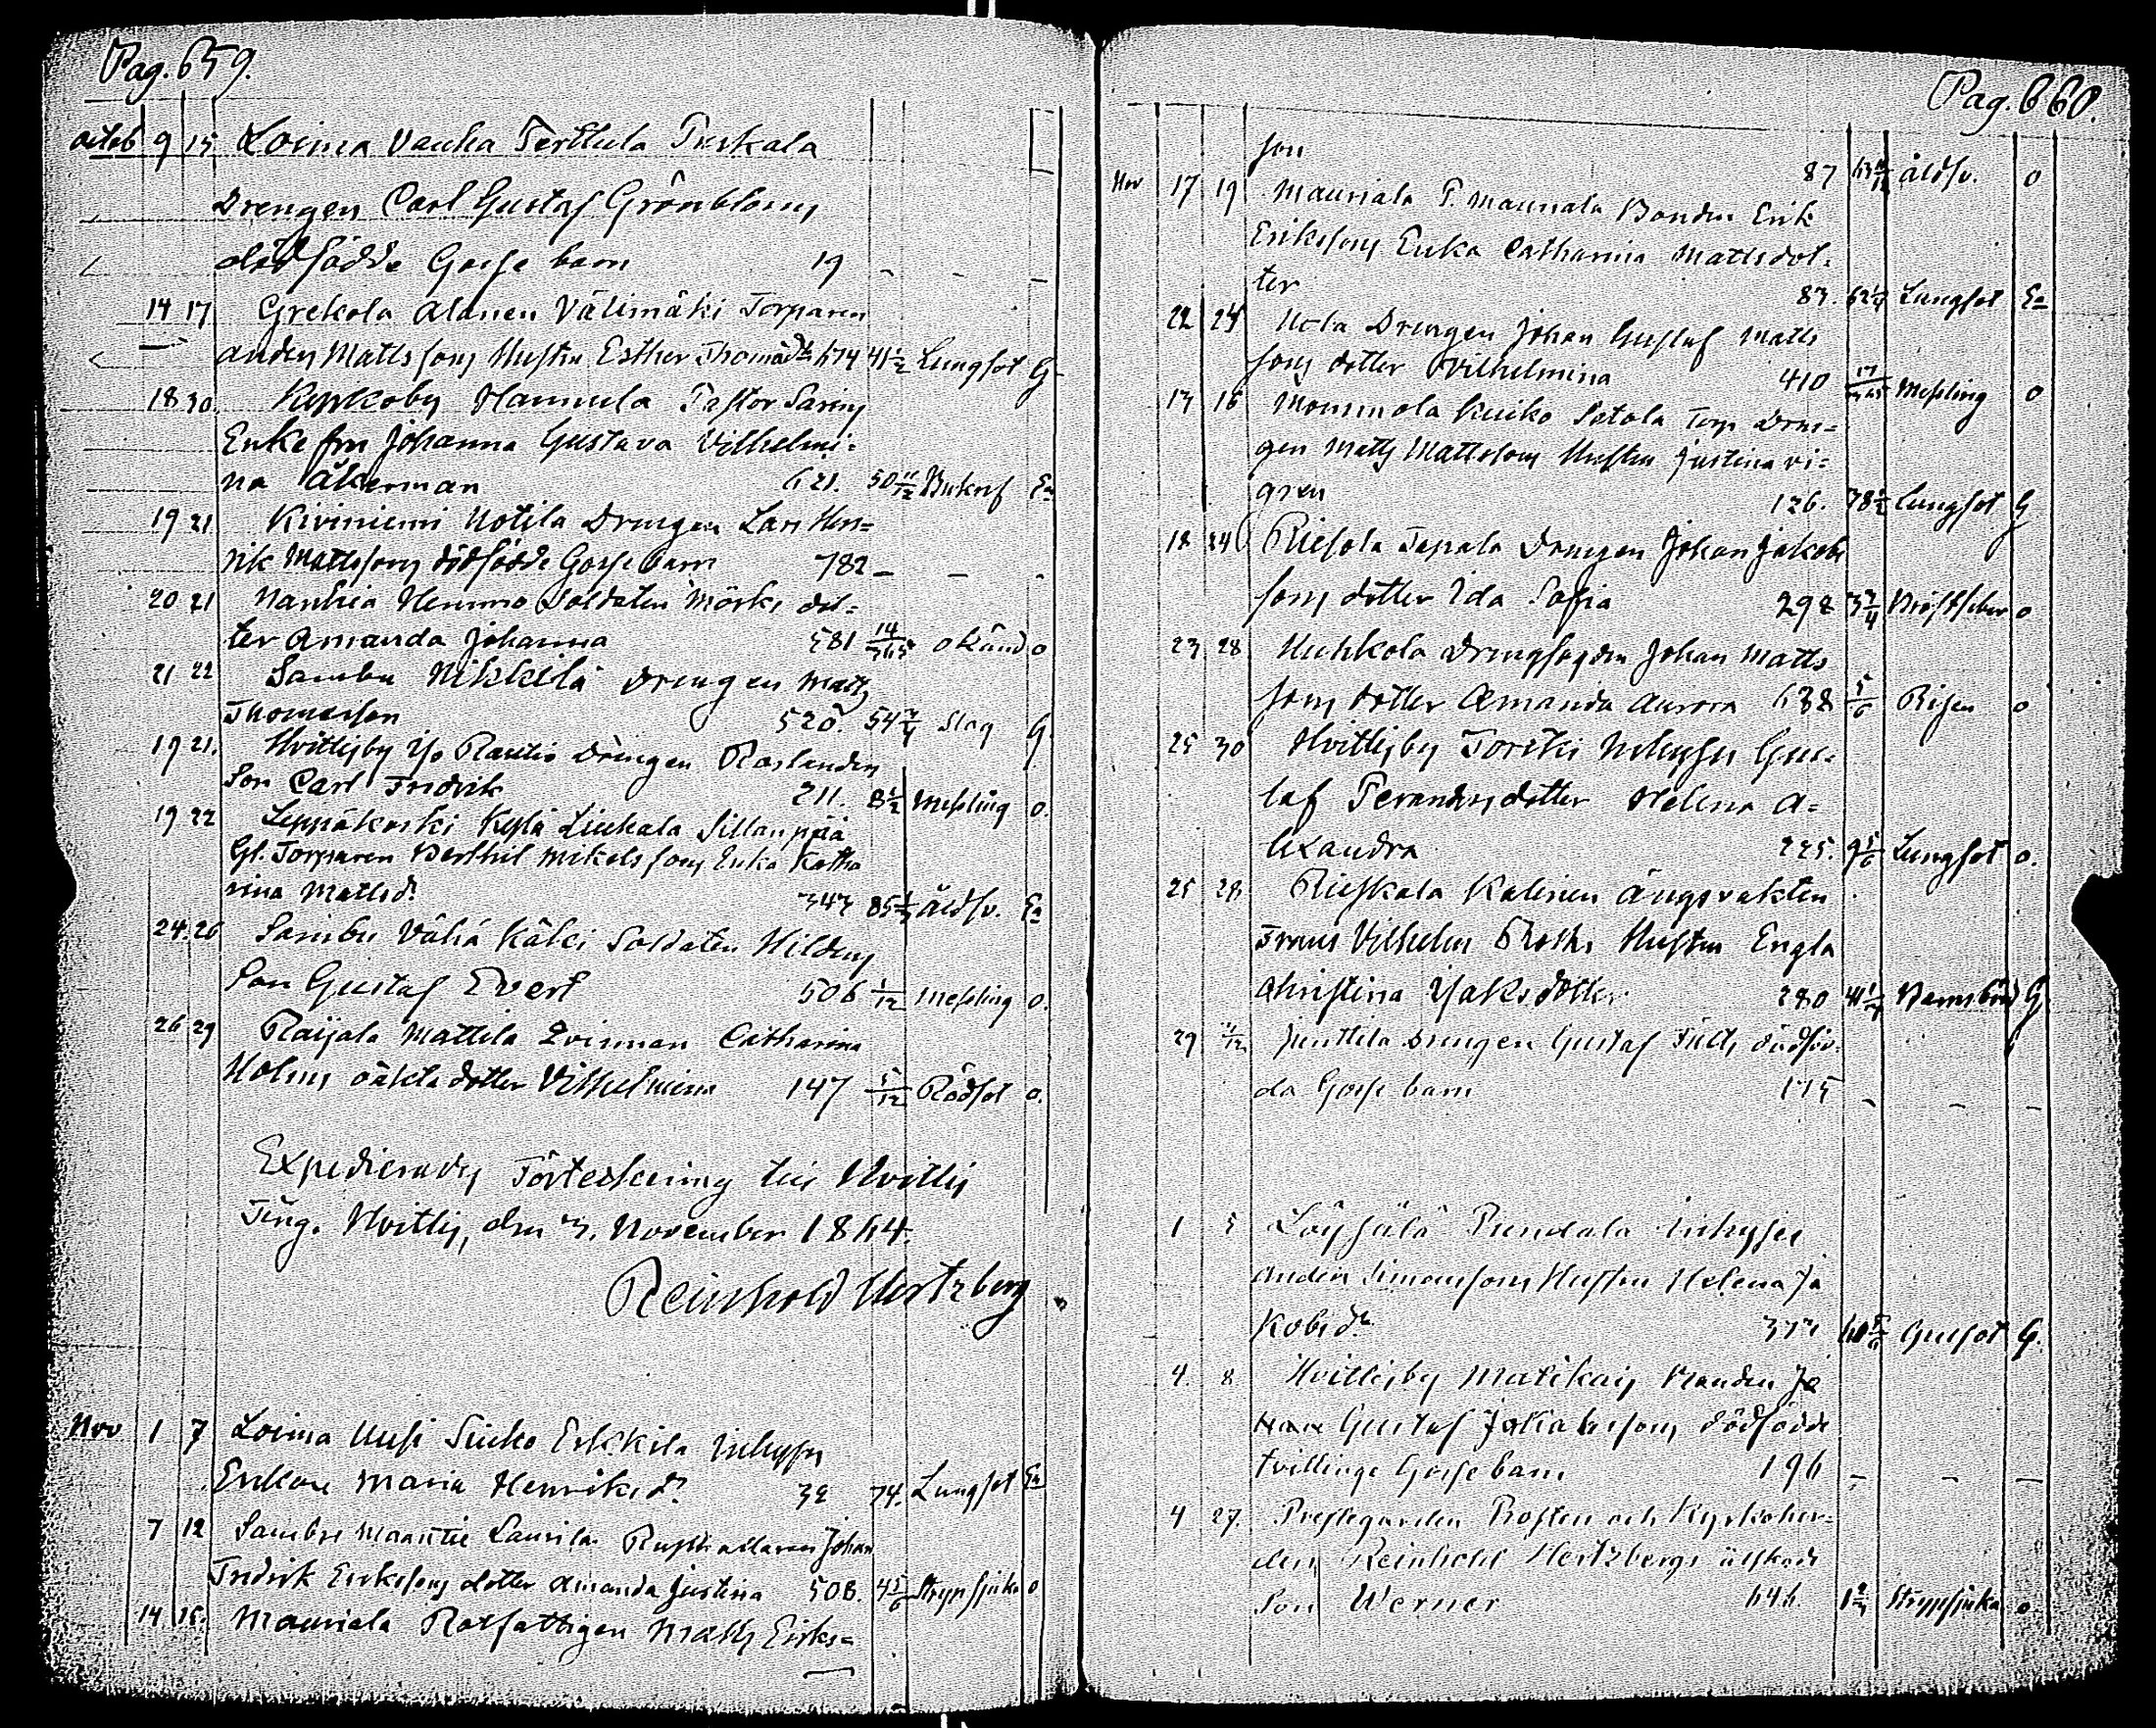 Pag. 659.
Octob 9 15 Loima Vauha Perthula Puskala
Drengen Carl Gustaf Grönbloms
dödfödde Gosse barn 19 - - -
14 17 Grekola Alanen Välimäki Torparen
Anders Mattssons Hustru Esther Thomasdr 674 41 1/2 Lungsot G
18 30 Kyrkoby Hannula Pastor Sarins
Enkefru Johanna Gustava Vilhelmi=
na Åkerman 621. 50 11/12 Bukref En
19 21 Kiviniemi Uotila Drengen Lars Hen=
rik Mattssons dödfödde Gosse barn 782 - - -
20 21 Vanhia Hemmo Soldaten Mörks dot=
ter Amanda Johanna 581 14/365 okänd o
21 22 Sambu Nikkilä Drengen Matts
Thomasson 520. 54 3/4 Slag G.
19 21. Hvittisby Iso Rautio Drengen Roslunds
Son Carl Fredrik 211. 8 1/2 Messling o.
19 22 Leppäkoski Kylä Liukala Sillanpää
Gl. Torparen Berthil Mikelssons Enka Katha
rina Mattsd. 343 85 1/3 åldsv. En
24. 26 Sambu Vähä Käki Soldaten Hildens
Son Gustaf Evert 506 1/12 Messling o.
26 29 Raijala Mattila Qvinnan Catharina
Holms oäkta dotter Vilhelmina 147 5/12 Rödsot o.
Expedierades Förteckning till Hvittis
Ting. Hvittis, den 3. November 1864.
Reinhold Hertzberg
Nov 1 7 Loima Uusi Siuko Erkkilä Inhyses
Enkan Maria Henriksd. 32 74. Lungsot En
7 12 Sambu Maantie Laurila Rusthållaren Johan
Fredrik Erikssons dotter Amanda Justina 508. 4 5/6 Strypsjuka o
14. 15. Mauriala Rotfattigen Matts Eriks=
Pag. 660.
son 87 63 åldsv. o
Nov 17 19 Mauriala P. Maunala Bonden Erik
Erikssons Enka Catharina Mattsdot=
ter 83. 62 1/4 Lungsot En
22 24 Uola Drengen Johan Gustaf Matts
sons dotter Vilhelmina 410 17/365 Messling o
13 16 Mommola Kuiko Satola Torp Dren=
gen Matts Mattssons Hustru Justina Vi=
gren 126. 38 1/2 Lungsot G
18 24 Riesola Tapala Drengen Johan Jakobs
sons dotter Ida Sofia 298 3 3/4 Bröstfeber o
23 28 Huhkola Drengsägden Johan Matts
sons dotter Amanda Aurora 638 5/6 Risen o
25 30 Hvittisby Torski Inhyses Gus=
taf Ferandersdotter Helena A=
lexandra 225. 9 5/6 Lungsot o.
25 28 Rieskala Kalinen Ängsvakten
Frans Vilhelm Hustru Engla
Christina Isaksdotter 280 41 1/4 Barnsbörd G
29 4/12 Junttila Drengen Gustaf Fälts dödföd=
da Gosse barn 175 - - -
1 5 Löysälä Pundala Inhyses
Anders Simonssons Hustru Helena Ja
kobsdr 373 60 5/6 Gulsot G.
4. 8 Hvittisby Matikais Bonden Jo
han Gustaf Jakobssons dödfödde
tvillinge Gosse barn 196 - - -
4 27. Prestegården Prosten och Kyrkoher=
den Reinhold Hertzbergs älskade
Son Werner 646 1 2/3 Strypsjuka o